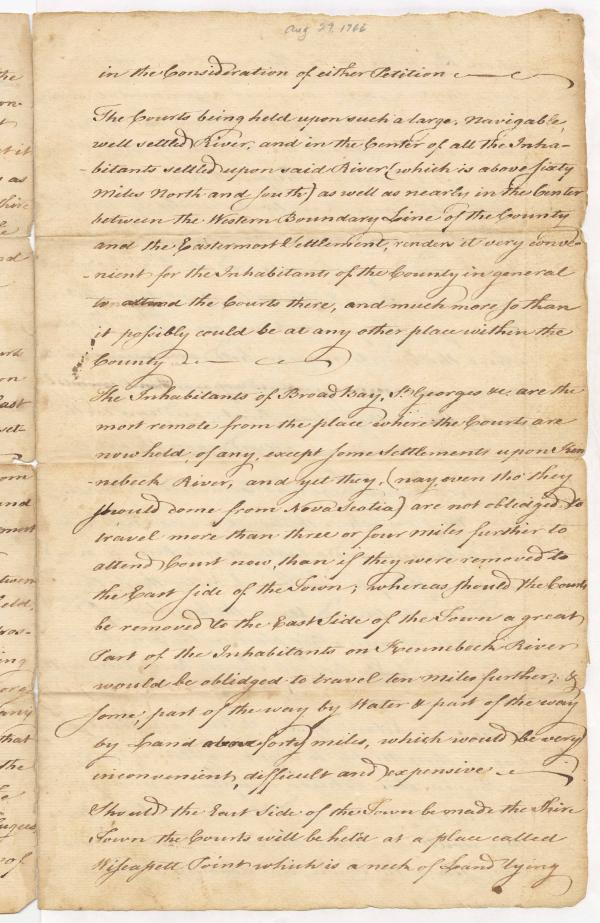 Aug 29, 1766
in the Consideration of either Petition
The Courts being held upon such a large, navigable,
well settled River, and in the Center of all the Inha-
-bitants settled upon said River (which is above sixty
Miles North and South) as well as nearly in the Center
between the Western Boundary Line of the County
and the Eastermost Settlement, renders it very conve-
-nient for the Inhabitants of the County in general
to attend the Courts there, and much more so than
it possibly could be at any other place within the
County
The Inhabitants of Broad Bay, St. Georges &c. are the
most remote from the place where the Courts are
now held, of any, except some Settlements upon Ken
-nebeck River, and yet they, (nay, even tho' they
should come from Nova Scotia) are not oblidged to
travel more than three or four miles further to
attend Court now, than if they were removed to
the East side of the Town; whereas should the Courts
be removed to the East Side of the Town a great
Part of the Inhabitants on Kennebeck River
would be oblidged to travel ten miles further, &
some, part of the way by Water & part of the way
by Land above forty miles, which would be very
inconvenient, difficult and expensive
Should the East Side of the Town be made the Shire
Town the Courts will be held at a place called
Wiscasett Point which is a neck of Land lying